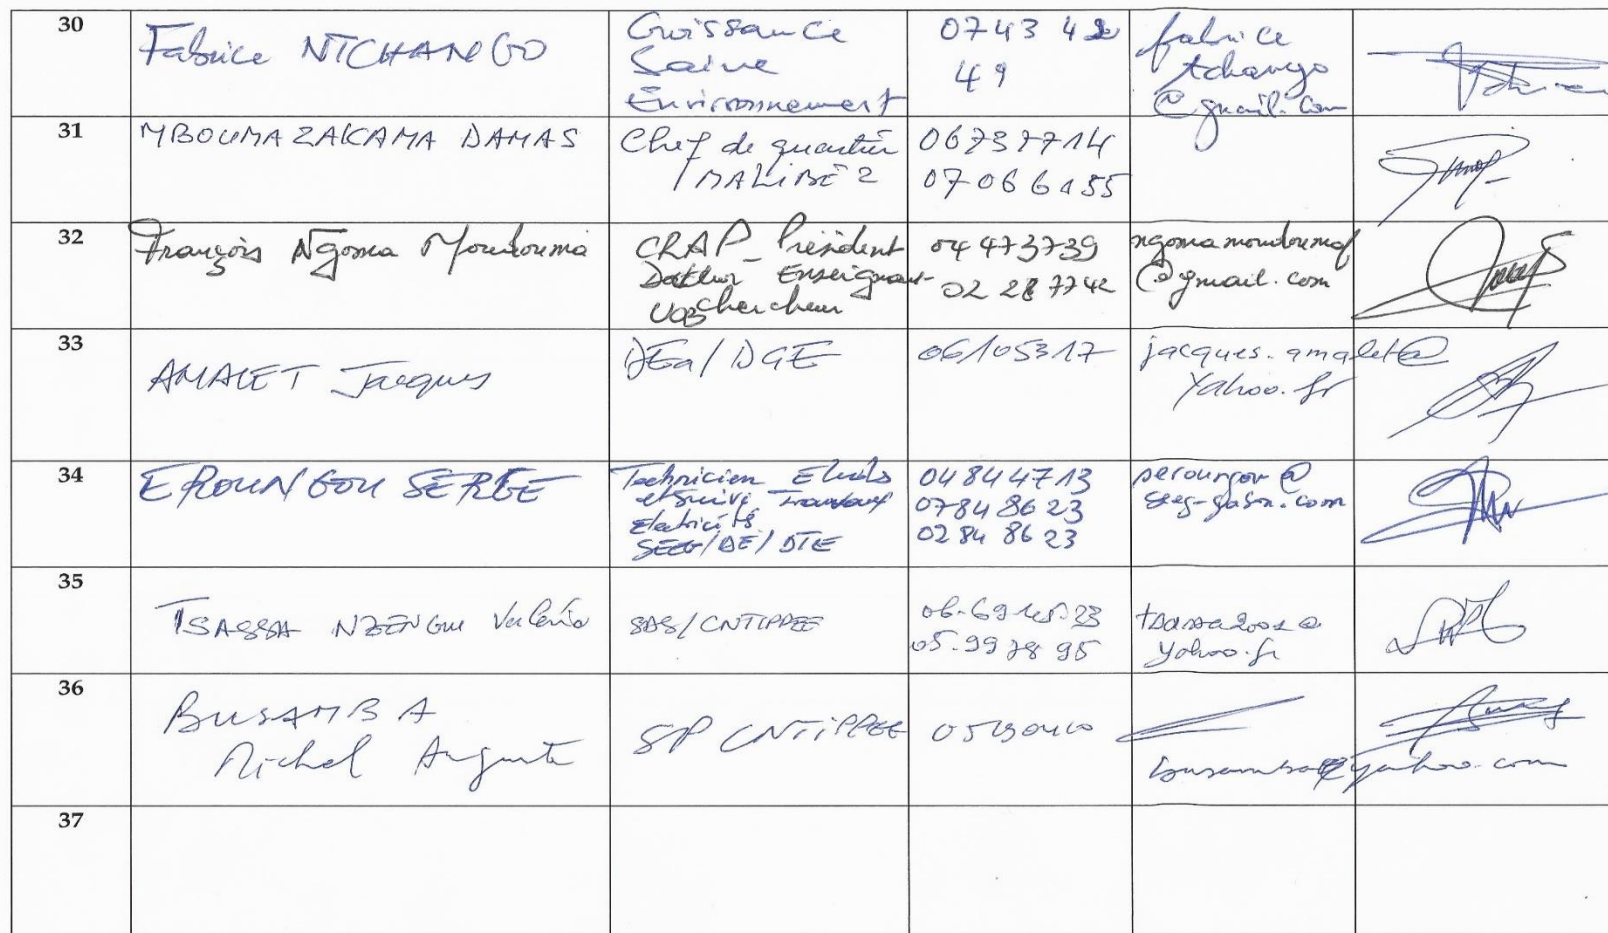 30
Fabrice NTCHANGO
Croissance
Saine
Environnement
0743 42
49
fabrice
tchango
@gmail.com
31
MBOUMA ZAKAMA DAMAS
Chef de quartier
MALIBÉ 2
07066155
32
François Ngoma Moundouma
CRAP_ Président
Docteur Enseignant-
UOB Chercheur
04 473739
02 28 7742
@gmail.com
33
AMALET Jacques
DEa/DGE
06105317
jacques.amalet@
yahoo.fr
34
EROUNGOU SERGE
Technicien Etudes
et suivi Travaux
Electricité
SEEG/DE/DTE
04844713
0784 86 23
02 84 86 23
seroungou@
seeg-gabon.com
35
TSASSA NZENGUE Valérie
SAS/CNTIPPEE
05.99 78 95
yahoo.fr
36
BUSAMBA
Michel Auguste
SP CNTIPPEE
yahoo.com
37